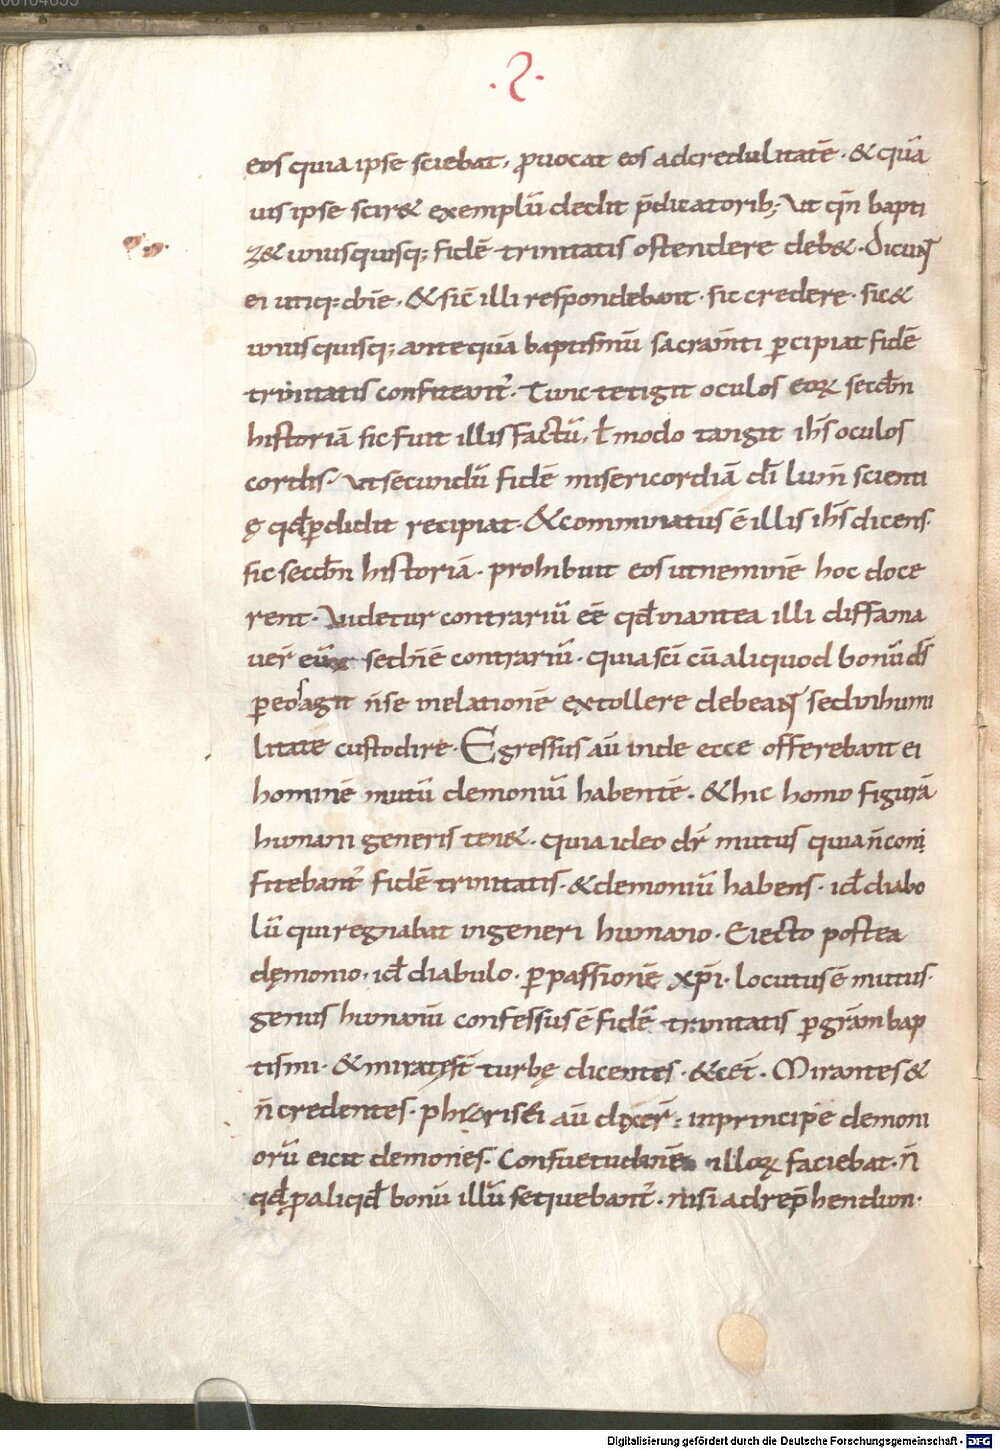 ·2·
eos quia ipse sciebat, ꝓuocat eos adcredulitatē · & quā
uis ipse scir& exemplū dedit p̄dicatorib; Ut qn̄ bapti
z& unusquisq; fidē trinitatis ostendere deb&. Dicunt
ei utiq; dn̄e. & sic̄ illi respondebant · sic credere · sic &
unusquisq; antequā baptismū sacram̄ti ꝑcipiat fidē
trinitatis confiteant᷑. Tunc tetigit oculos eoꝝ secdn̄
historiā sic fuit illis factū, ł modo tangit ih̄s oculos
cordis. Ut secundū fidē misericordiā dī lum̄ scienti
ę qđ ꝑdidit recipiat. & comminatus ē illis ih̄s dicens.
sic secdn̄ historiā · prohibuit eos ut neminē hoc doce
rent. Videtur contrariū eē qđ in antea illi diffama
uer̄ eū sed n̄ ē contrariū · quia sc̄i cū aliquod bonū ds̄
ꝑ eos agit n̄ se in elationē extollere debeant sed in humi
litate custodire. Egressus aū inde ecce offerebant ei
hominē mutū demoniū habentē. & hic homo figurā
humani generis ten&. quia ideo dr̄ mutus quia n̄ con
fitebant᷑ fidē trinitatis · & demoniū habens · id̄ diabo
lū qui regnabat in generi humano. Eiecto postea
dęmonio, id̄ diabulo · ꝑ passionē xp̄i · locutus ē mutus.
genus humanū confessus ē fidē trinitatis ꝑ grām bap
tismi. & miratę st̄ turbę dicentes · & cet̄. Mirantes &
n̄ credentes. pharisei aū dixer̄: in principe demoni
orū eicit demones. Consuetudinē illoꝝ faciebat. n̄
qđ ꝑ aliqd̄ bonū illū sequebant᷑. nisi ad rep̄hendun·
Digitalisierung gefördert durch die Deutsche Forschungsgemeinschaft - DFG